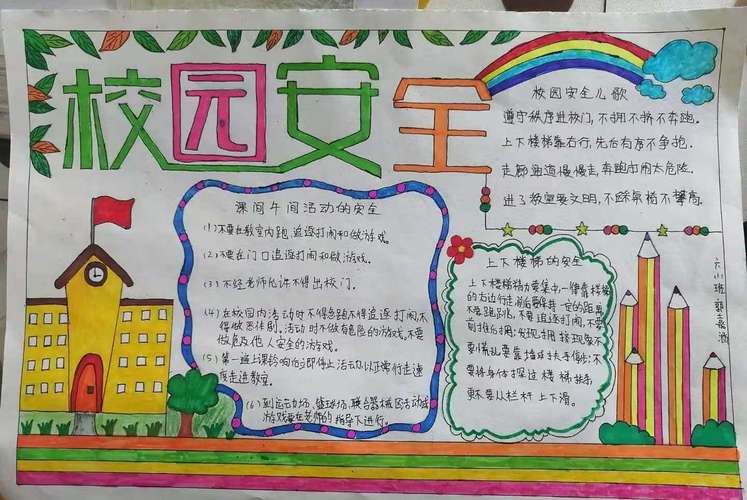 校园安全
校园安全儿歌
遵守秩序进校门,不拥不挤不奔跑.
上下楼梯靠右行,先后有序不争抢.
走廊通道慢慢走,奔跑打闹太危险.
进了教室要文明,不踩桌椅不攀高.
课间午间活动的安全
(1)不要在教室内跑,追逐打闹和做游戏。
(2)不要在门口追逐打闹和做游戏.
(3)不经老师允许不得出校门.
(4)在校园内活动时不得急跑不得追逐打闹,不
得做恶作剧.活动时不做有危的游戏.不要
做危及他人安全的活游戏.
(5)第一遍上课铃响后立即停止活动以正常行走速
度走进教室.
(6)到运动场,篮球场,联合器械区活动或
游戏要在老师的指导下进行.
上下楼梯的安全
上下楼梯精力要集中一律靠楼梯
的右边行走,前后要保持一定的距离
不要跑跳,不要追逐打闹,不要
前推后拥;发现拥挤现象不
要慌乱要靠墙或扶手停步;不
要将身体探过楼梯扶手
更不要从栏杆上下滑。
六班